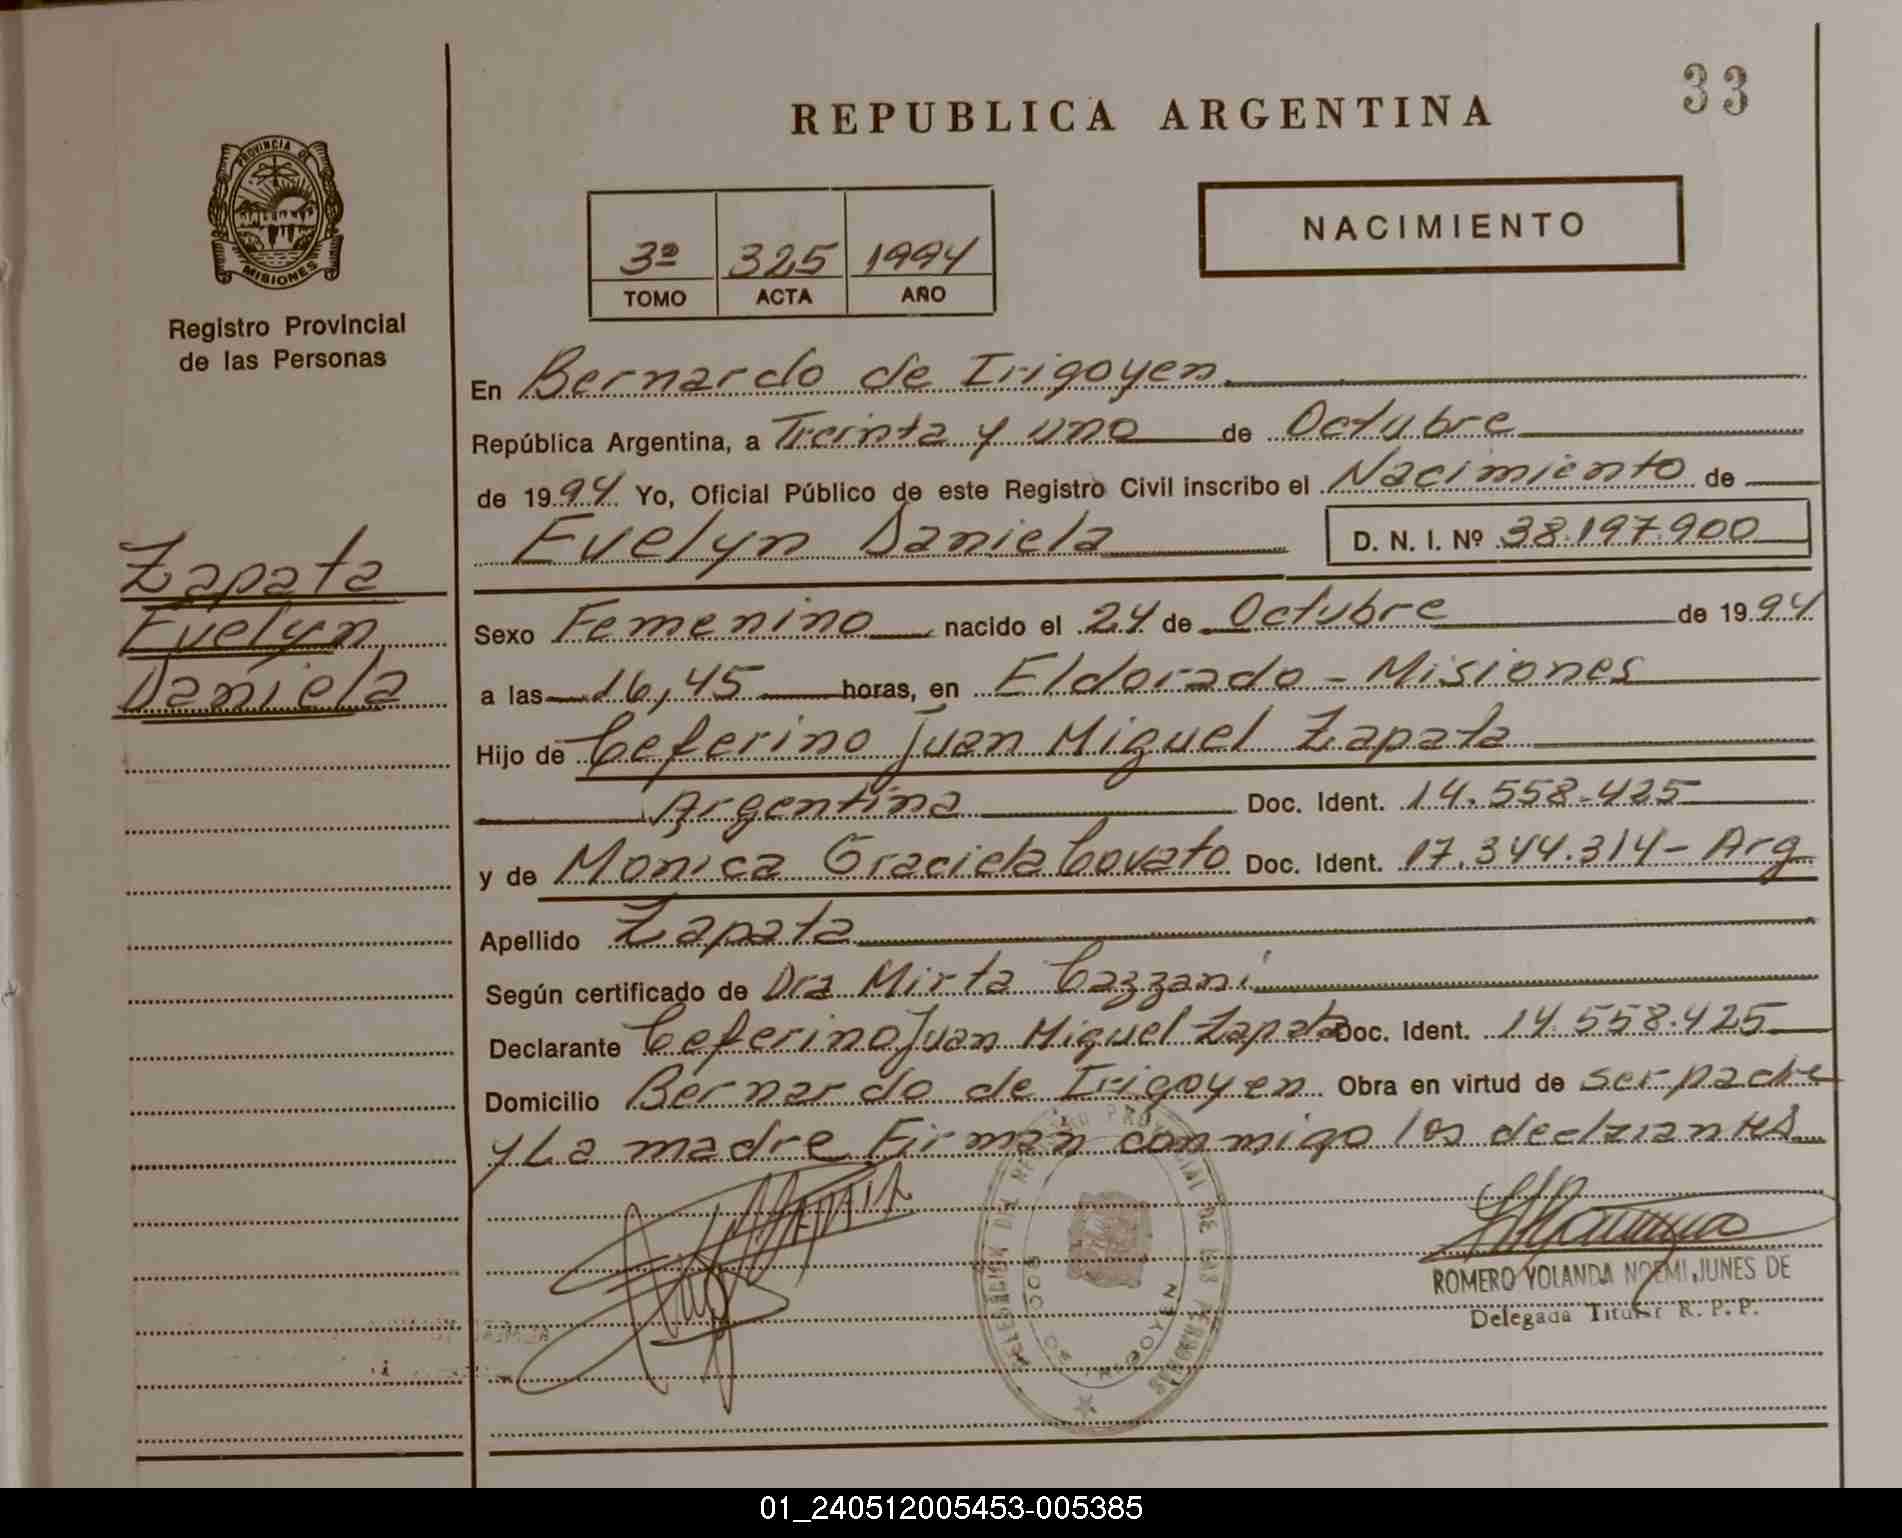 33
REPUBLICA ARGENTINA
PROVINCIA DE
MISIONES
Registro Provincial
de las Personas
NACIMIENTO
3º 325 1994
TOMO ACTA AÑO
En Bernardo de Irigoyen
República Argentina, a Treinta y uno de Octubre
de 1994 Yo, Oficial Público de este Registro Civil inscribo el Nacimiento de
Evelyn Daniela D. N. I. Nº 38.197.900
Zapata
Evelyn
Daniela
Sexo Femenino nacido el 24 de Octubre de 1994
a las 16,45 horas, en Eldorado - Misiones
Hijo de Ceferino Juan Miguel Zapata
Argentina Doc. Ident. 14.558.425
y de Monica Graciela Covato Doc. Ident. 17.344.314 - Arg
Apellido Zapata
Según certificado de Dra Mirta Cazzani
Declarante Ceferino Juan Miguel Zapata Doc. Ident. 14.558.425
Domicilio Bernardo de Irigoyen Obra en virtud de ser padre
y La madre Firman conmigo los declarantes
ROMERO YOLANDA NOEMI JUNES DE
Delegada Titular R. P. P.
01_240512005453-005385